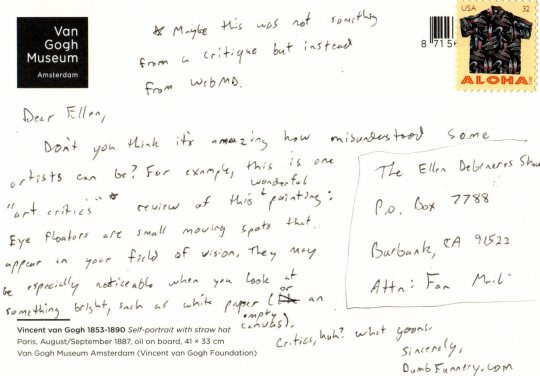 Van
Gogh
Museum
Amsterdam
* Maybe this was not something
from a critique but instead
from WebMD.
8 715
USA 32
ALOHA
Dear Ellen,
Don't you think it's amazing how misunderstood some
artists can be? For example, this is one
"art critics" * review of this wonderful painting:
Eye floaters are small moving spots that
appear in your field of vision. They may
be especially noticeable when you look at
something bright, such as white paper (or an
empty canvas).
Critics, huh? What goons.
Sincerely,
DumbFunnery.com
The Ellen Degeneres Show
P.O. Box 7788
Burbank, CA 91522
Attn: Fan Mail
Vincent van Gogh 1853-1890 Self-portrait with straw hat
Paris, August/September 1887, oil on board, 41 × 33 cm
Van Gogh Museum Amsterdam (Vincent van Gogh Foundation)